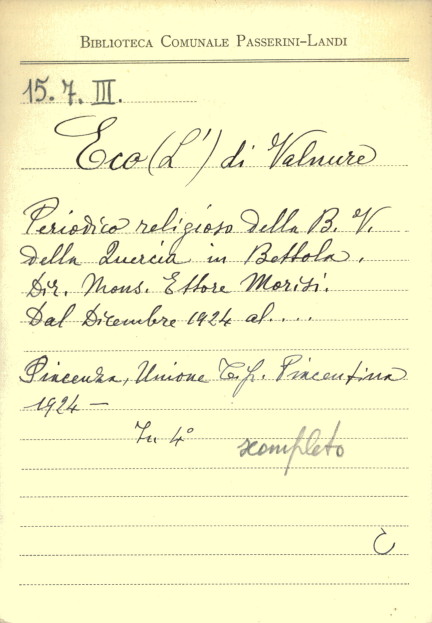 BIBLIOTECA COMUNALE PASSERINI-LANDI
15.7.III.
Eco (L') di Valnure
Periodico religioso della B. V.
della Quercia in Bettola.
Dir. Mons. Ettore Morisi.
Dal Dicembre 1924 al....
Piacenza, Unione Tip. Piacentina
1924 —
In 4°
scompleto